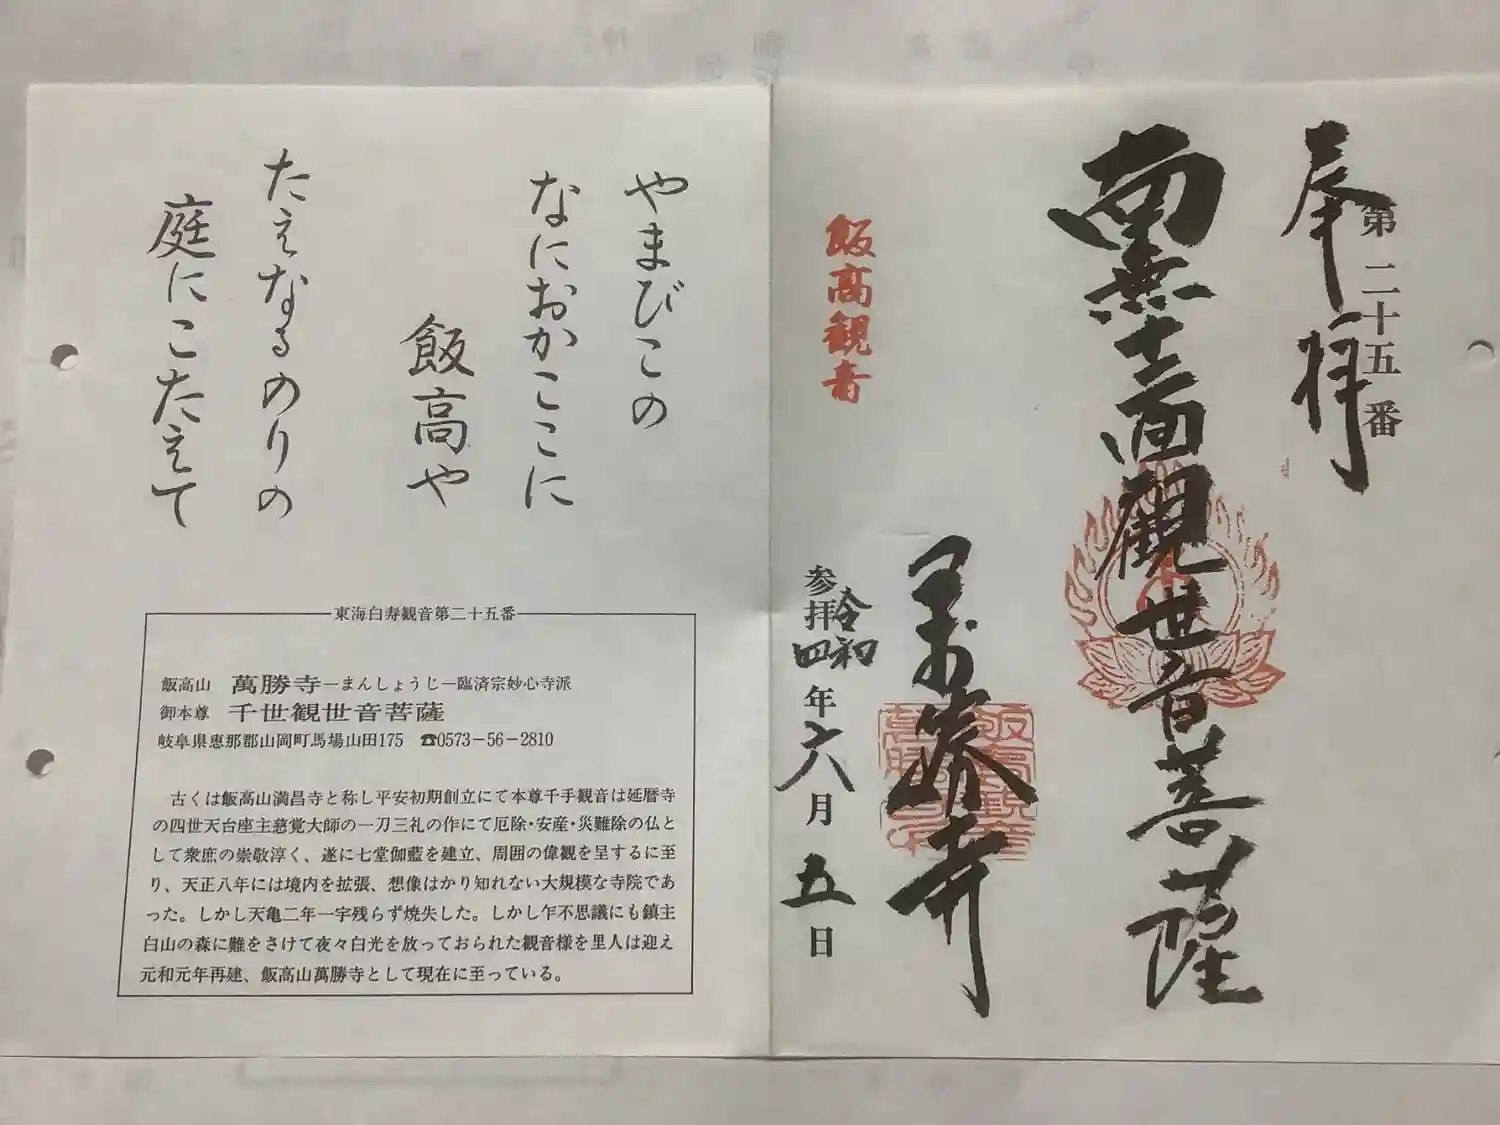 第二十五番
奉拝
南無十一面観世音菩薩
萬勝寺
飯高観音
参拝
令和
四年六月五日
やまびこの
なにおかここに
飯高や
たえなるのりの
庭にこたえて
東海白寿観音第二十五番
飯高山 萬勝寺―まんしょうじ―臨済宗妙心寺派
御本尊 千世観世音菩薩
岐阜県恵那郡山岡町馬場山田175 ☎0573−56−2810
古くは飯高山満昌寺と称し平安初期創立にて本尊千手観音は延暦寺
の四世天台座主慈覚大師の一刀三礼の作にて厄除・安産・災難除の仏と
して衆庶の崇敬淳く、遂に七堂伽藍を建立、周囲の偉観を呈するに至
り、天正八年には境内を拡張、想像はかり知れない大規模な寺院であ
った。しかし天亀二年一宇残らず焼失した。しかし乍不思議にも鎮主
白山の森に難をさけて夜々白光を放っておられた観音様を里人は迎え
元和元年再建、飯高山萬勝寺として現在に至っている。